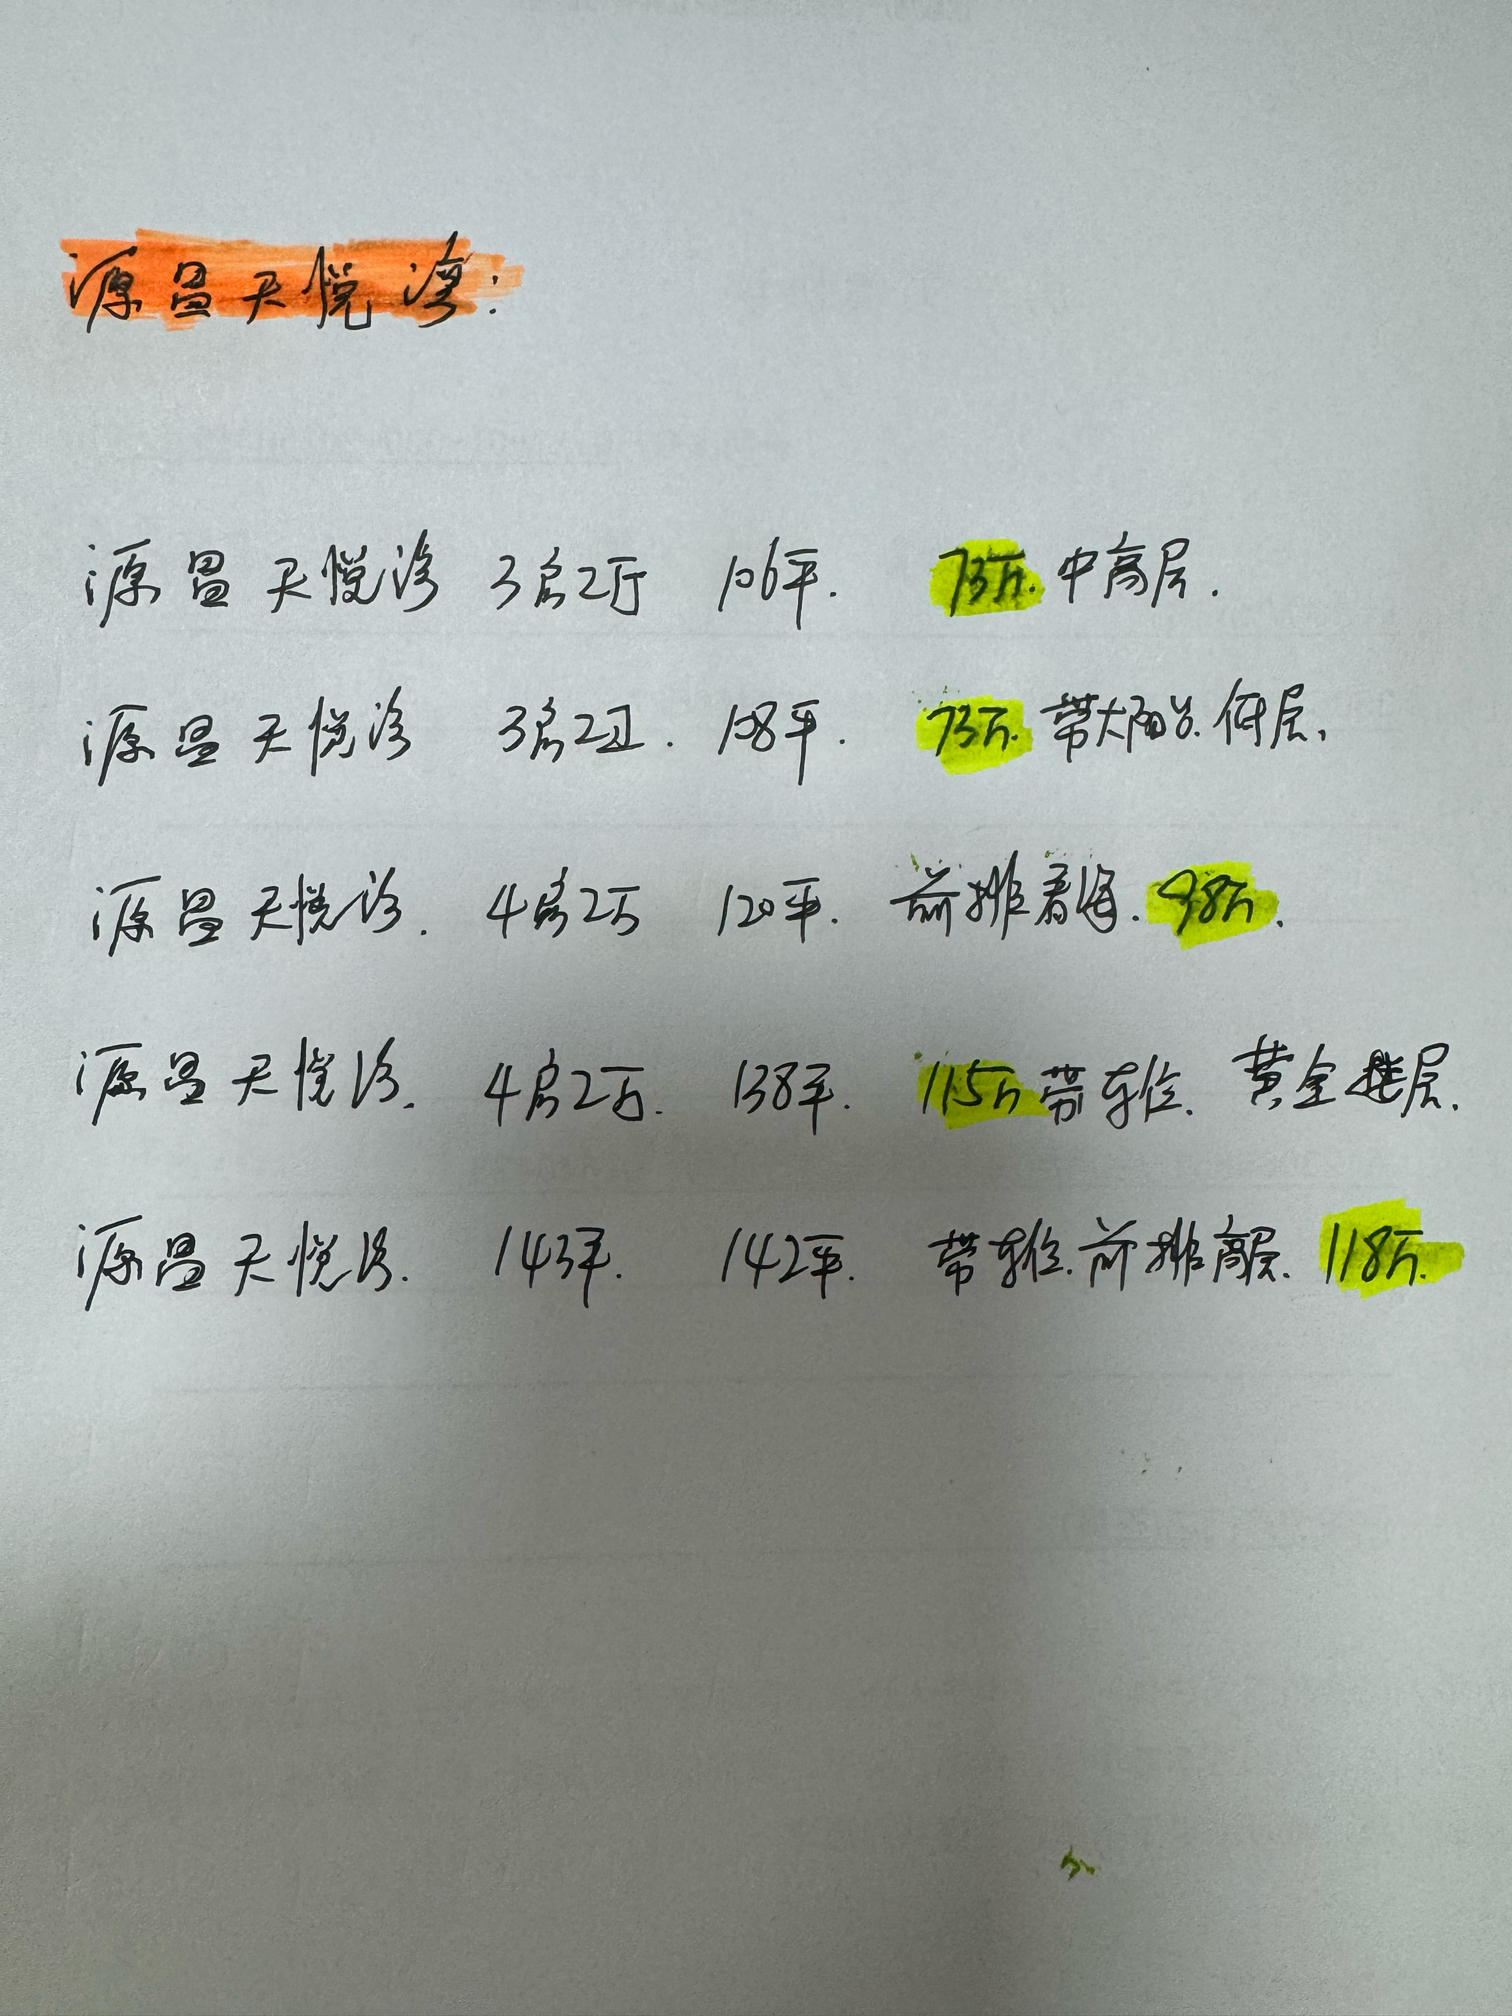 源昌天悦湾:
源昌天悦湾 3房2厅 106平. 73万. 中高层.
源昌天悦湾 3房2卫. 108平. 73万. 带大阳台. 低层.
源昌天悦湾. 4房2厅 120平. 前排看海. 98万.
源昌天悦湾. 4房2厅. 138平. 115万 带车位. 黄金楼层.
源昌天悦湾. 143平. 142平. 带车位. 前排高层. 118万.